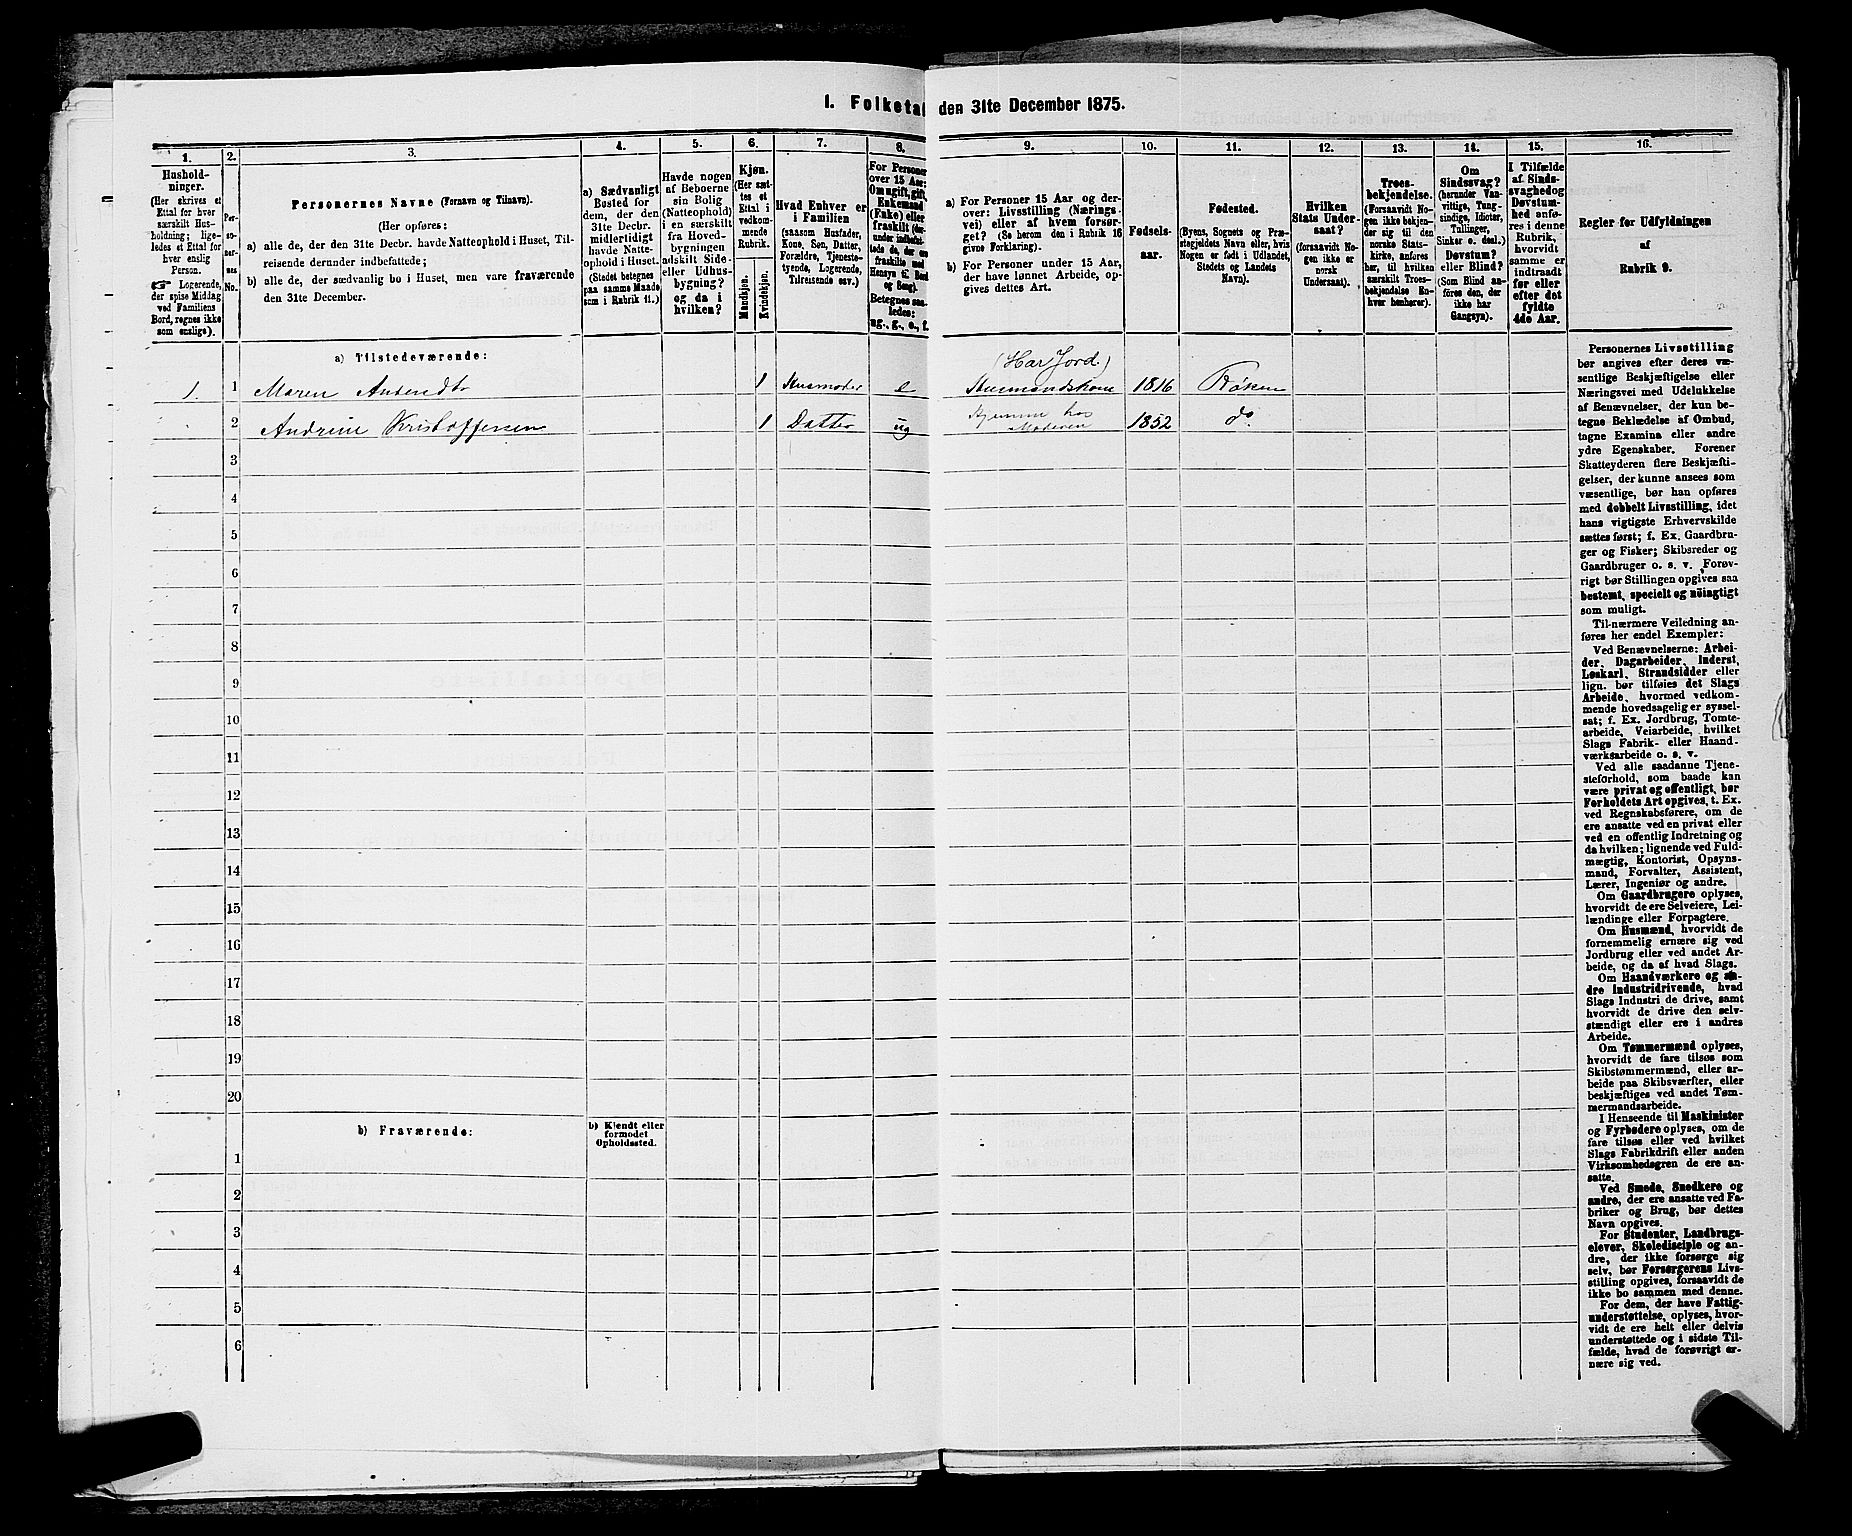 1. Folketal den 31te December 1875.
1.
Hushold-
ninger.
(Her skrives et
Ettal for hver
særskilt Hus-
holdning; lige-
ledes et Ettal for
hver enslig
Person.
☞ Logerende,
der spise Middag
ved Familiens
Bord, regnes ikke
som enslige).
2.
Per-
so-
ner-
nes
No.
3.
Personernes Navne (Fornavn og Tilnavn).
(Her opføres:
a) alle de, der den 31te Decbr. havde Natteophold i Huset, Til-
reisende derunder indbefattede;
b) alle de, der sædvanlig bo i Huset, men vare fraværende
den 31te December.
4.
a) Sædvanligt
Bosted for
dem, der den
31te Decbr.
midlertidigt
havde Natte-
ophold i Huset.
(Stedet betegnes
paa samme Maade
som i Rubrik 11.)
5.
Havde nogen
af Beboerne
sin Bolig
(Natteophold)
i en særskilt
fra Hoved-
bygningen
adskilt Side-
eller Udhus-
bygning?
og da i
hvilken?
6.
Kjøn.
(Her sæt-
tes et
Ettal i
vedkom-
mende
Rubrik.
Mandkjøn.
Kvindekjøn.
7.
Hvad Enhver er
i Familien
(saasom Husfader,
Kone, Søn, Datter,
Forældre, Tjeneste-
tyende, Logerende,
Tilreisende osv.)
8.
For Personer
over 15 Aar:
Om ugift, gift,
Enkemand
(Enke) eller
fraskilt (der-
under indbefat-
tede de, der ere
fraskilte med
Hensyn til Bord
og Seng).
Betegnes saa-
ledes:
ug., g., e., f.
9.
a) For Personer 15 Aar og der-
over: Livsstilling (Nærings-
vei) eller af hvem forsør-
get? (Se herom den i Rubrik 16
givne Forklaring).
b) For Personer under 15 Aar,
der have lønnet Arbeide, op-
gives dettes Art.
10.
Fødsels-
aar.
11.
Fødested.
(Byens, Sognets og Præ-
stegjeldets Navn eller, hvis
Nogen er født i Udlandet,
Stedets og Landets
Navn).
12.
Hvilken
Stats Under-
saat?
(forsaavidt No-
gen ikke er
norsk
Undersaat).
13.
Troes-
bekjendelse.
(Forsaavidt No-
gen ikke bekjen-
der sig til den
norske Stats-
kirke, anføres
her, til hvilken
særskilt Troes-
bekjendelse En-
hver henhører).
14.
Om
Sindssvag?
(herunder Van-
vittige, Tung-
sindige, Idioter,
Tullinger,
Sinker o. desl.)
Døvstum?
eller Blind?
(Som Blind an-
føres den, der
ikke har
Gangsyn).
15.
I Tilfælde
af Sinds-
svaghed og
Døvstum-
hed anfø-
res i denne
Rubrik,
hvorvidt
samme er
indtraadt
før eller
efter det
fyldte
4de Aar.
16.
Regler for Udfyldningen
af
Rubrik 9.
a) Tilstedeværende:
(Har Jord.)
1. 1 Maren 1 Husmoder e 1816 Røken
2 Andrine Kristoffersen 1 Datter ug Hjemme hos Moderen 1852 do
3
4
5
6
7
8
9
10
11
12
13
14
15
16
17
18
19
20
b) Fraværende:
b) Kjendt eller
formodet
Opholdssted.
1
2
3
4
5
6
Personernes Livsstilling
bør angives efter deres væ-
sentlige Beskjæftigelse eller
Næringsvei med Udelukkelse
af Benævnelser, der kun be-
tegne Beklædelse af Ombud,
tagne Examina eller andre
ydre Egenskaber. Forener
Skatteyderen flere Beskjæfti-
gelser, der kunne ansees som
væsentlige, bør han opføres
med dobbelt Livsstilling, idet
hans vigtigste Erhvervskilde
sættes først; f. Ex. Gaardbru-
ger og Fisker; Skibsreder og
Gaardbruger o. s. v. Forøv-
rigt bør Stillingen opgives saa
bestemt, specielt og nöiagtigt
som muligt.
Til nærmere Veiledning an-
føres her endel Exempler:
Ved Benævnelserne: Arbei-
der, Dagarbeider, Inderst,
Løskarl, Strandsidder eller
lign. bør tilføies det Slags
Arbeide, hvormed vedkom-
mende hovedsagelig er syssel-
sat; f. Ex. Jordbrug, Tomte-
arbeide, Veiarbeide, hvilket
Slags Fabrik- eller Haand-
værksarbeide o. s. v.
Ved alle saadanne Tjene-
steforhold, som baade kan
være privat og offentligt, bør
Forholdets Art opgives, t. Ex.
ved Regnskabsførere, om de
ere ansatte ved en privat eller
ved en offentlig Indretning og
da hvilken; lignende ved Fuld-
mægtig, Kontorist, Opsyns-
mand, Forvalter, Assistent,
Lærer, Ingeniør og andre.
Om Gaardbrugere oplyses,
hvorvidt de ere Selveiere, Lei-
lændinge eller Forpagtere.
Om Husmænd, hvorvidt de
fornemmelig ernære sig ved
Jordbrug eller ved andet Ar-
beide, og da af hvad Slags.
Om Haandværkere og an-
dre Industridrivende, hvad
Slags Industri de drive, samt
hvorvidt de drive den selv-
stændigt eller ere i andres
Arbeide.
Om Tømmermænd oplyses,
hvorvidt de fare tilsøs som
Skibstømmermænd, eller ar-
beide paa Skibsværfter, eller
beskjæftiges ved andet Tøm-
mermandsarbeide.
I Henseende til Maskinister
og Fyrbødere oplyses, om de
fare tilsøs eller ved hvilket
Slags Fabrikdrift eller anden
Virksomhedsgren de ere an-
satte.
Ved Smede, Snedkere og
andre, der ere ansatte ved Fa-
briker og Brug, bør dettes
Navn opgives.
For Studenter, Landbrugs-
elever, Skoledisciple og an-
dre, der ikke forsørge sig
selv, bør Forsørgerens Livs-
stilling opgives, forsaavidt de
ikke bo sammen med denne.
For dem, der have Fattig-
understøttelse, oplyses, hvor-
vidt de ere helt eller delvis
understøttede og i sidste Til-
fælde, hvad de forøvrigt er-
nære sig ved.